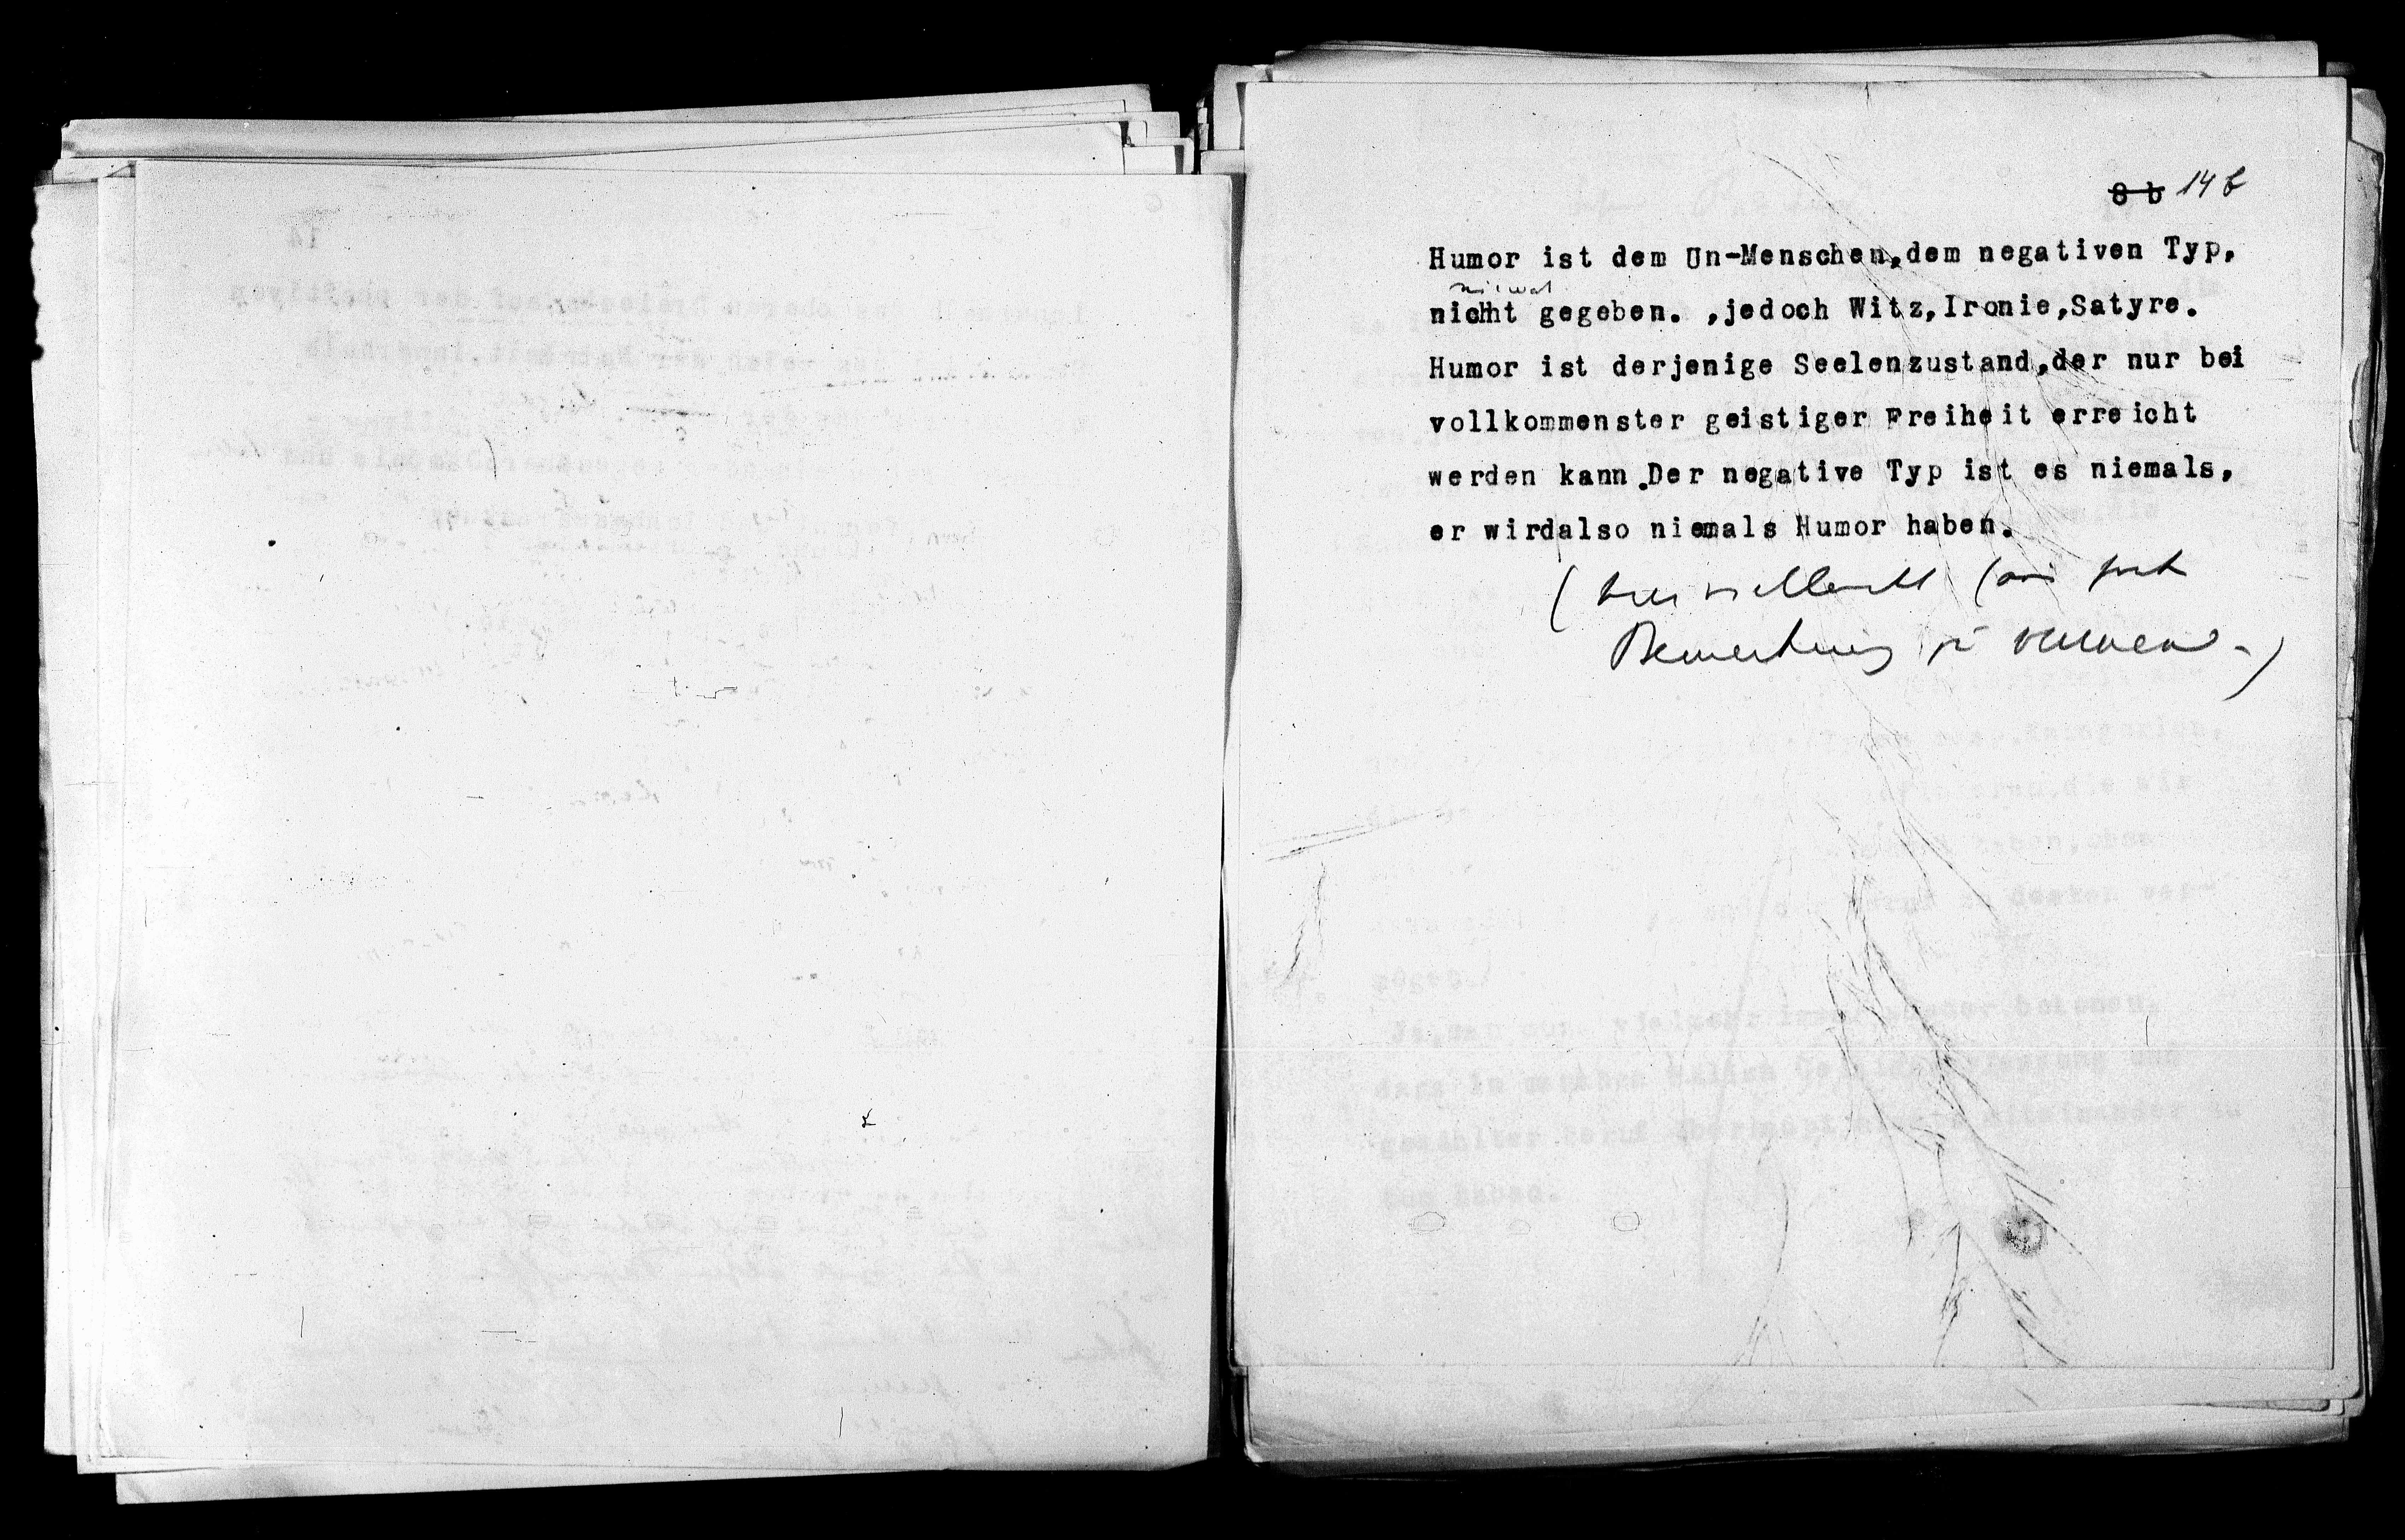 8 b 14 b
Humor ist dem Un-Menschen,dem negativen Typ,
niemals
nicht gegeben. ,jedoch Witz,Ironie,Satyre.
Humor ist derjenige Seelenzustand,der nur bei
vollkommenster geistiger Freiheit erreicht
werden kann.Der negative Typ ist es niemals,
er wirdalso niemals Humor haben.
( hier vielleicht
Bemerkung zu )